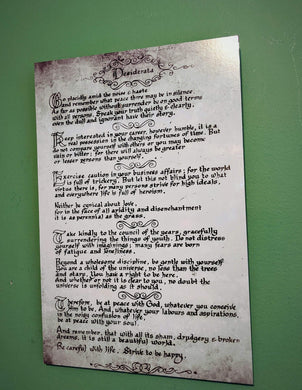 Desiderata
Go placidly amid the noise & haste
and remember what peace there may be in silence.
As far as possible without surrender be on good terms
with all persons. Speak your truth quietly & clearly,
even the dull and ignorant have their story.
Keep interested in your career, however humble, it is a
real possession in the changing fortunes of time. But
do not compare yourself with others or you may become
vain or bitter; for there will always be greater
or lesser persons than yourself.
Exercise caution in your business affairs; for the world
is full of trickery. But let this not blind you to what
virtue there is, for many persons strive for high ideals,
and everywhere life is full of heroism.
Neither be cynical about love,
for in the face of all aridity and disenchantment
it is as perennial as the grass.
Take kindly to the council of the years, gracefully
surrendering the things of youth. Do not distress
yourself with imaginings; many fears are born
of fatigue and loneliness.
Beyond a wholesome discipline, be gently with yourself
You are a child of the universe, no less than the trees
and stars, You have a right to be here.
And whether or not it is clear to you, no doubt the
universe is unfolding as it should.
Therefore, be at peace with God, whatever you conceive
him to be. And, whatever your labours and aspirations,
in the noisy confusion of life,
be at peace with your soul.
And remember, that with all its sham, drudgery & broken
dreams, it is still a beautiful world.
Be careful with life. Strive to be happy.